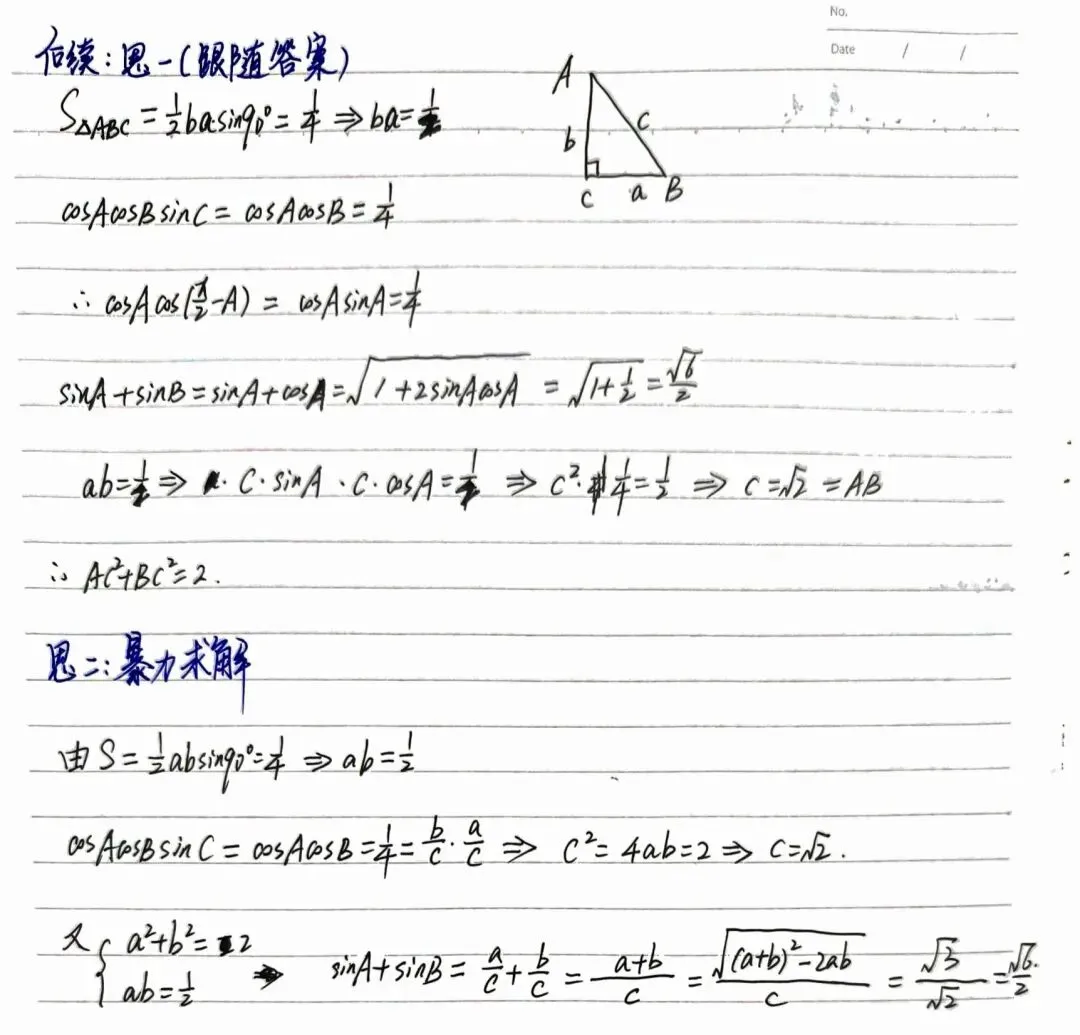 No.
Date / /
后续:思一(跟随答案)
S△ABC = 1/2 ba sin90° = 1/4 ⇒ ba = 1/2
A
b
c
C
a
B
cosAcosBsinC = cosAcosB = 1/4
∴ cosAcos(π/2-A) = cosAsinA = 1/4
sinA+sinB = sinA+cosA = √(1+2sinAcosA) = √(1+1/2) = √6/2
ab = 1/2 ⇒ c·sinA·c·cosA = 1/2 ⇒ c²·1/4 = 1/2 ⇒ c = √2 = AB
∴ AC²+BC² = 2.
思二:暴力求解
由 S = 1/2 ab sin90° = 1/4 ⇒ ab = 1/2
cosAcosBsinC = cosAcosB = 1/4 = b/c · a/c ⇒ c² = 4ab = 2 ⇒ c = √2.
又 { a²+b² = 2
ab = 1/2 ⇒ sinA+sinB = a/c + b/c = (a+b)/c = √((a+b)²-2ab)/c = √3/√2 = √6/2.